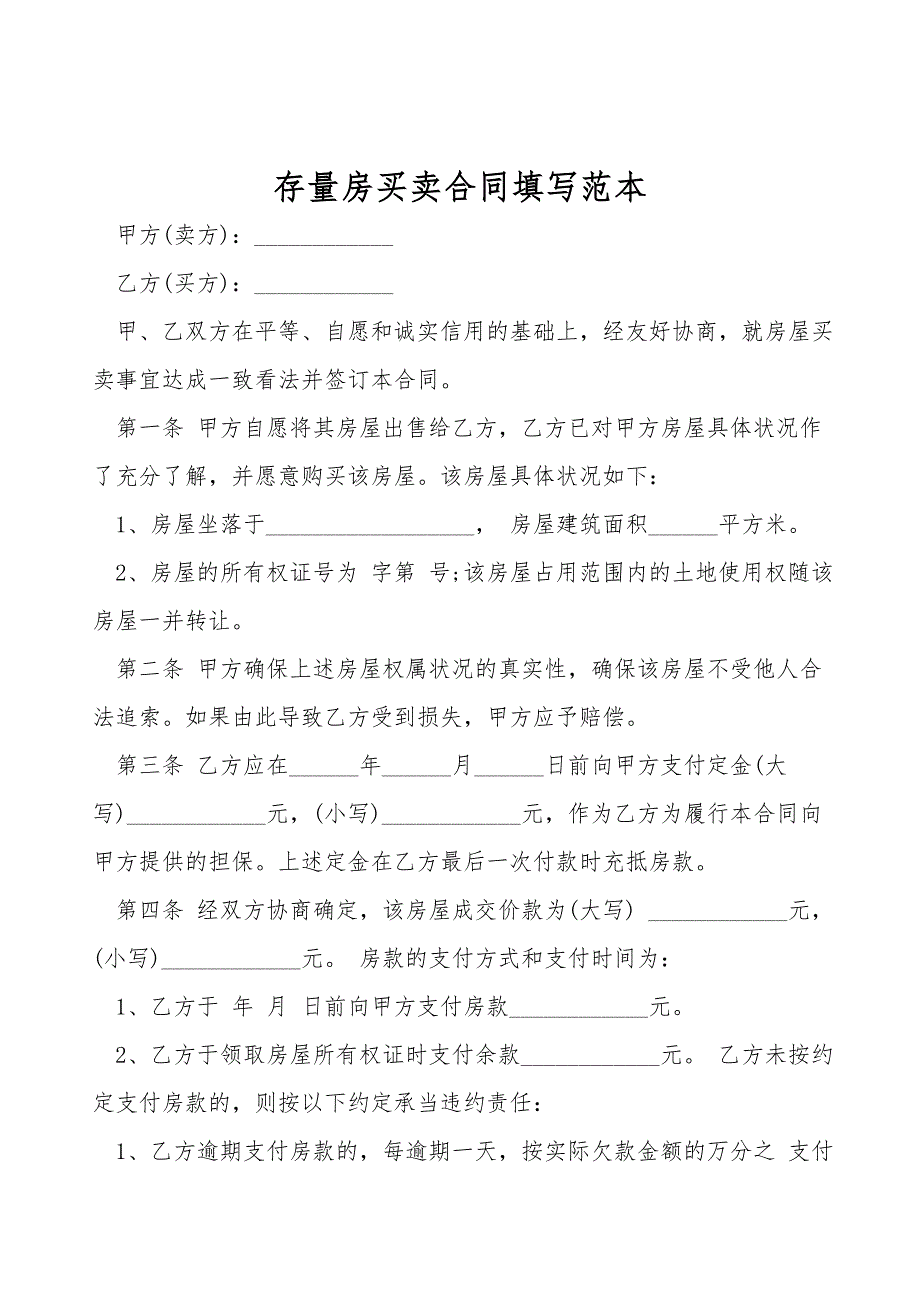 存量房买卖合同填写范本
甲方(卖方)：____________
乙方(买方)：____________
甲、乙双方在平等、自愿和诚实信用的基础上，经友好协商，就房屋买
卖事宜达成一致看法并签订本合同。
第一条 甲方自愿将其房屋出售给乙方，乙方已对甲方房屋具体状况作
了充分了解，并愿意购买该房屋。该房屋具体状况如下：
1、房屋坐落于__________________， 房屋建筑面积______平方米。
2、房屋的所有权证号为 字第 号;该房屋占用范围内的土地使用权随该
房屋一并转让。
第二条 甲方确保上述房屋权属状况的真实性，确保该房屋不受他人合
法追索。如果由此导致乙方受到损失，甲方应予赔偿。
第三条 乙方应在______年______月______日前向甲方支付定金(大
写)____________元，(小写)____________元，作为乙方为履行本合同向
甲方提供的担保。上述定金在乙方最后一次付款时充抵房款。
第四条 经双方协商确定，该房屋成交价款为(大写) ____________元，
(小写)____________元。 房款的支付方式和支付时间为：
1、乙方于 年 月 日前向甲方支付房款____________元。
2、乙方于领取房屋所有权证时支付余款____________元。 乙方未按约
定支付房款的，则按以下约定承当违约责任：
1、乙方逾期支付房款的，每逾期一天，按实际欠款金额的万分之 支付